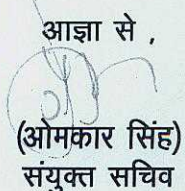 आज्ञा से ,
(ओमकार सिंह)
संयुक्त सचिव